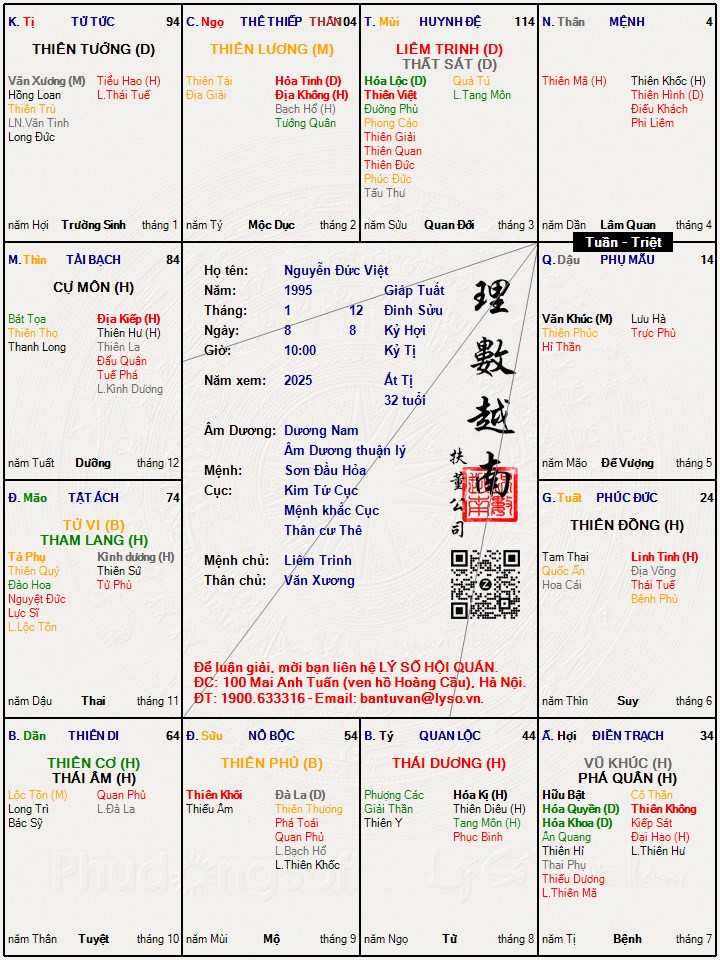 K. Tị TỬ TỨC 94
THIÊN TƯỚNG (D)
Văn Xương (M) Tiểu Hao (H)
Hồng Loan L.Thái Tuế
Thiên Trù
LN.Văn Tinh
Long Đức
năm Hợi Trường Sinh tháng 1
C. Ngọ THÊ THIẾP THÂN 104
THIÊN LƯƠNG (M)
Thiên Tài Hỏa Tinh (D)
Địa Giải Địa Không (H)
Bạch Hổ (H)
Tướng Quân
năm Tý Mộc Dục tháng 2
T. Mùi HUYNH ĐỆ 114
LIÊM TRINH (D)
THẤT SÁT (D)
Hóa Lộc (D) Quả Tú
Thiên Việt L.Tang Môn
Đường Phù
Phong Cáo
Thiên Giải
Thiên Quan
Thiên Đức
Phúc Đức
Tấu Thư
năm Sửu Quan Đới tháng 3
N. Thân MỆNH 4
Thiên Mã (H) Thiên Khốc (H)
Thiên Hình (D)
Điếu Khách
Phi Liêm
năm Dần Lâm Quan tháng 4
Tuần - Triệt
M. Thìn TÀI BẠCH 84
CỰ MÔN (H)
Bát Tọa Địa Kiếp (H)
Thiên Thọ Thiên Hư (H)
Thanh Long Thiên La
Đẩu Quân
Tuế Phá
L.Kình Dương
năm Tuất Dưỡng tháng 12
Họ tên: Nguyễn Đức Việt
Năm: 1995 Giáp Tuất
Tháng: 1 12 Đinh Sửu
Ngày: 8 8 Kỷ Hợi
Giờ: 10:00 Kỷ Tị
Năm xem: 2025 Ất Tị
32 tuổi
Âm Dương: Dương Nam
Âm Dương thuận lý
Mệnh: Sơn Đầu Hỏa
Cục: Kim Tứ Cục
Mệnh khắc Cục
Thân cư Thê
Mệnh chủ: Liêm Trinh
Thân chủ: Văn Xương
理數越南
扶董公司
Để luận giải, mời bạn liên hệ LÝ SỐ HỘI QUÁN.
ĐC: 100 Mai Anh Tuấn (ven hồ Hoàng Cầu), Hà Nội.
ĐT: 1900.633316 - Email: bantuvan@lyso.vn.
Q. Dậu PHỤ MẪU 14
Văn Khúc (M) Lưu Hà
Thiên Phúc Trực Phù
Hỉ Thần
năm Mão Đế Vượng tháng 5
Đ. Mão TẬT ÁCH 74
TỬ VI (B)
THAM LANG (H)
Tả Phụ Kình dương (H)
Thiên Quý Thiên Sứ
Đào Hoa Tử Phù
Nguyệt Đức
Lực Sĩ
L.Lộc Tồn
năm Dậu Thai tháng 11
G. Tuất PHÚC ĐỨC 24
THIÊN ĐỒNG (H)
Tam Thai Linh Tinh (H)
Quốc Ấn Địa Võng
Hoa Cái Thái Tuế
Bệnh Phù
năm Thìn Suy tháng 6
B. Dần THIÊN DI 64
THIÊN CƠ (H)
THÁI ÂM (H)
Lộc Tồn (M) Quan Phù
Long Trì L.Đà La
Bác Sỹ
năm Thân Tuyệt tháng 10
Đ. Sửu NÔ BỘC 54
THIÊN PHỦ (B)
Thiên Khôi Đà La (D)
Thiếu Âm Thiên Thương
Phá Toái
Quan Phủ
L.Bạch Hổ
L.Thiên Khốc
năm Mùi Mộ tháng 9
B. Tý QUAN LỘC 44
THÁI DƯƠNG (H)
Phượng Các Hóa Kị (H)
Giải Thần Thiên Diêu (H)
Thiên Y Tang Môn (H)
Phục Binh
năm Ngọ Tử tháng 8
Ấ. Hợi ĐIỀN TRẠCH 34
VŨ KHÚC (H)
PHÁ QUÂN (H)
Hữu Bật Cô Thần
Hóa Quyền (D) Thiên Không
Hóa Khoa (D) Kiếp Sát
Ân Quang Đại Hao (H)
Thiên Hỉ L.Thiên Hư
Thai Phụ
Thiếu Dương
L.Thiên Mã
năm Tị Bệnh tháng 7